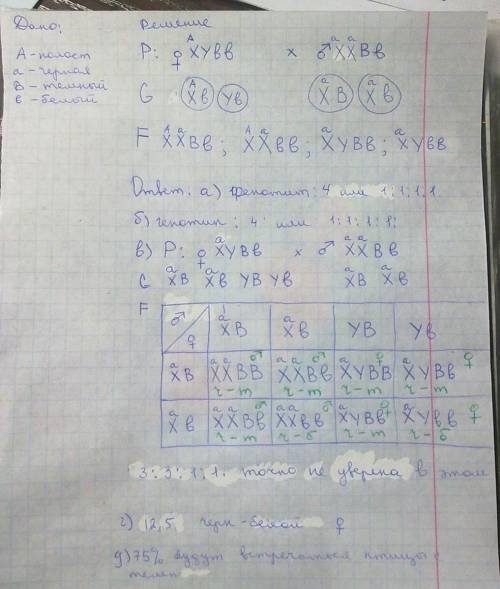 Дано:
Решение
А - полост
а - черная
В - темный
в - белый
Р: ♀ XᴬYвв × ♂ XᵃXᵃВв
G Xᴬв Yв XᵃВ Xᵃв
F XᴬXᵃВв; XᴬXᵃвв; XᵃYВв; XᵃYвв
Ответ: а) фенотип: 4 или 1:1:1:1
б) генотип: 4 или 1:1:1:1
в) Р: ♀ XᵃYВв × ♂ XᵃXᵃВв
G XᵃВ Xᵃв YВ Yв XᵃВ Xᵃв
F
♂ ♀ XᵃВ Xᵃв YВ Yв
XᵃВ XᵃXᵃВВ ♂ ч-т XᵃXᵃВв ♂ ч-т XᵃYВВ ♀ ч-т XᵃYВв ♀ ч-т
Xᵃв XᵃXᵃВв ♂ ч-т XᵃXᵃвв ♂ ч-б XᵃYВв ♀ ч-т XᵃYвв ♀ ч-б
3:3:1:1. точно не уверена в этом
г) 12,5 черн-белой ♀
д) 75% будут встречаться птицы с
темн